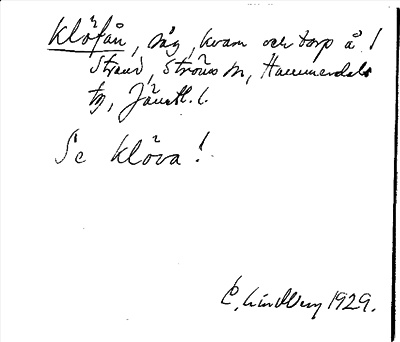 Klöfån, såg, kvarn och torp å l
Strand, Ströms sn, Hammerdals
tg, Jämtl. l.
Se Klöva!
C. Lindberg 1929.